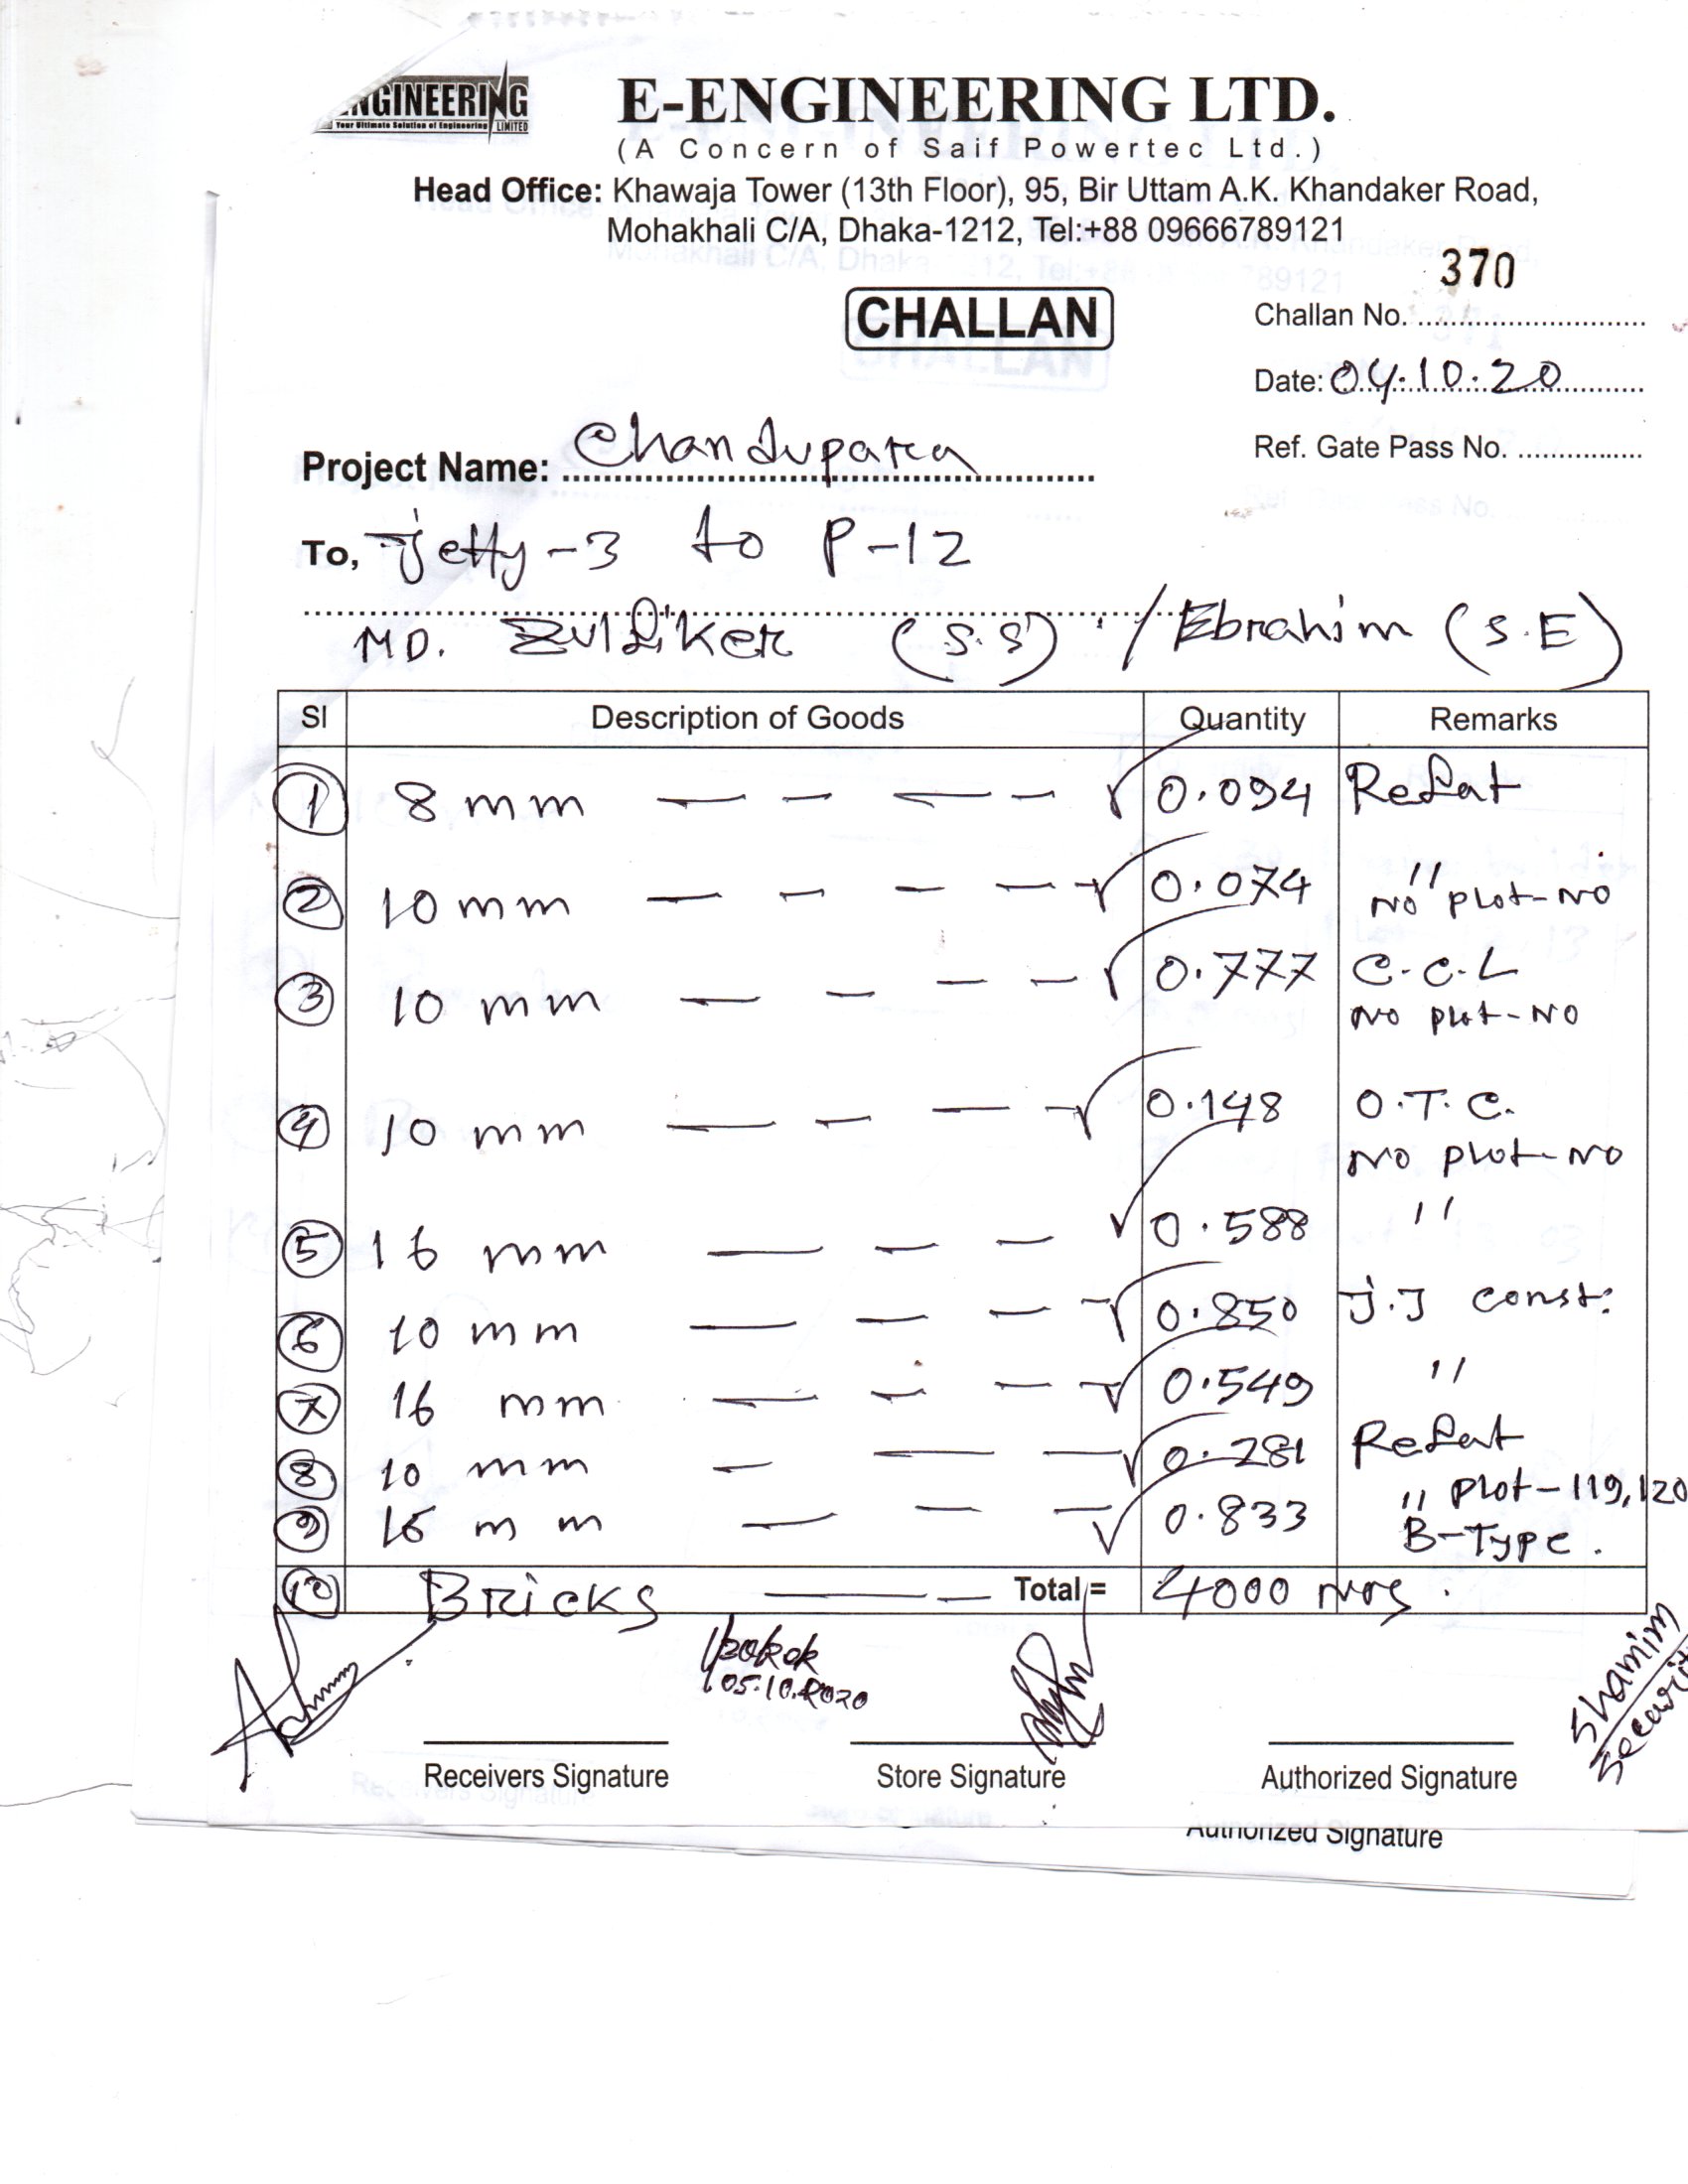 ENGINEERING
Your Ultimate Solution of Engineering LIMITED
E-ENGINEERING LTD.
(A Concern of Saif Powertec Ltd.)
Head Office: Khawaja Tower (13th Floor), 95, Bir Uttam A.K. Khandaker Road,
Mohakhali C/A, Dhaka-1212, Tel:+88 09666789121
370
CHALLAN
Challan No.
Date: 04.10.20
Ref. Gate Pass No.
Project Name: Chandupara
To, Jetty-3 to P-12
MD. Zulfiker (S.S) / Ebrahim (S.E)
Sl Description of Goods Quantity Remarks
1 8 mm 0.094 Refat
2 10 mm 0.074 "
No plot-No
3 10 mm 0.777 C.C.L
No plot-No
4 10 mm 0.148 O.T.C.
No plot-No
5 16 mm 0.588 "
6 10 mm 0.850 J.J const:
7 16 mm 0.549 "
8 10 mm 0.281 Refat
9 16 mm 0.833 " Plot-119,120
B-Type.
10 Bricks Total = 4000 nos.
05.10.2020
Shamim
Receivers Signature Store Signature Authorized Signature
Authorized Signature